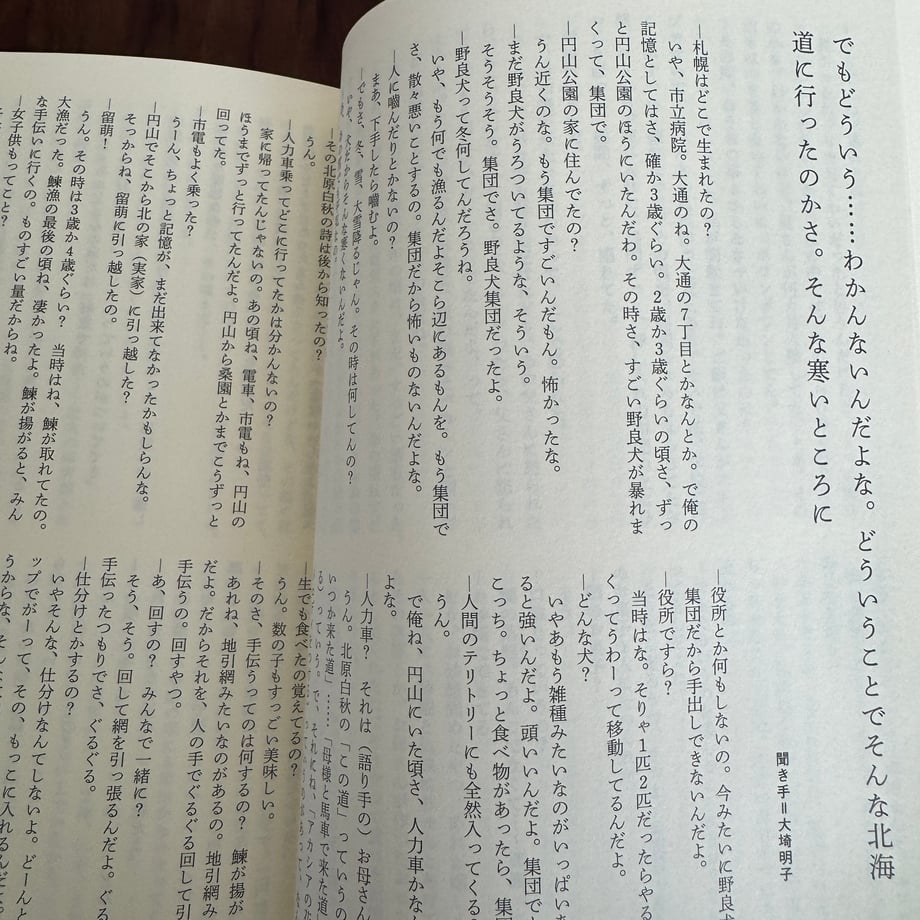 でもどういう……わかんないんだよな。どういうことでそんな北海
道に行ったのかさ。そんな寒いところに
聞き手＝大埼明子
―札幌はどこで生まれたの？
いや、市立病院。大通のね。大通の7丁目とかなんとか。で俺の
記憶としてはさ、確か3歳ぐらい。2歳か3歳ぐらいの頃さ、ずっ
と円山公園のほうにいたんだわ。その時さ、すごい野良犬が暴れま
くって、集団で。
―円山公園の家に住んでたの？
うん近くのな。もう集団ですごいんだもん。怖かったな。
―まだ野良犬がうろついてるような、そういう。
そうそうそう。集団でさ。野良犬集団だったよ。
―野良犬って冬何してんだろうね。
いや、もう何でも漁るんだよそこら辺にあるもんを。もう集団で
さ、散々悪いことするの。集団だから怖いものないんだよな。
―人に噛んだりとかないの？
まあ、下手したら噛むよ。
―でもさ、冬、雪、大雪降るじゃん。その時は何してんの？
―役所とか何もしないの。今みたいに野良
集団だから手出しできないんだよ。
―役所ですら？
当時はな。そりゃ1匹2匹だったらやる
くってうわーって移動してるんだよ。
―どんな犬？
いやあもう雑種みたいなのがいっぱい
ると強いんだよ。頭いいんだよ。集団で
こっち。ちょっと食べ物があったら、集
―人間のテリトリーにも全然入ってくる
うん。
で俺ね、円山にいた頃さ、人力車かな
よな。
―人力車？　それは（語り手の）お母さん
うん。北原白秋の「この道」っていうの
いつか来た道」……「母様と馬車で来た道
る）っていう。で、それにね、「アカシアの
―その北原白秋の詩は後から知ったの？
うん。
―人力車乗ってどこに行ってたかは分かんないの？
家に帰ってたんじゃないの。あの頃ね、電車、市電もね、円山の
ほうまでずっと行ってたんだよ。円山から桑園とかまでこうずっと
回ってた。
―市電もよく乗った？
うーん、ちょっと記憶が、まだ出来てなかったかもしらんな。
―円山でそこから北の家（実家）に引っ越した？
そっからね、留萌に引っ越したの。
―留萌！
うん。その時は3歳か4歳ぐらい？　当時はね、鰊が取れてたの。
大漁だった。鰊漁の最後の頃ね、凄かったよ。鰊が揚がると、みん
な手伝いに行くの。ものすごい量だからね。
―女子供もってこと？
―生でも食べたの覚えてるの？
うん。数の子もすっごい美味しい。
―そのさ、手伝うってのは何するの？　鰊が揚が
あれね、地引網みたいなのがあるの。地引網み
だよ。だからそれを、人の手でぐるぐる回して引
手伝うの。回すやつ。
―あ、回すの？　みんなで一緒に？
そう、そう。回して網を引っ張るんだよ。ぐる
手伝ったつもりでさ、ぐるぐる。
―仕分けとかするの？
いやそんな、仕分けなんてしないよ。どーんと
ップでがーって、その、もっこに入れるんだ